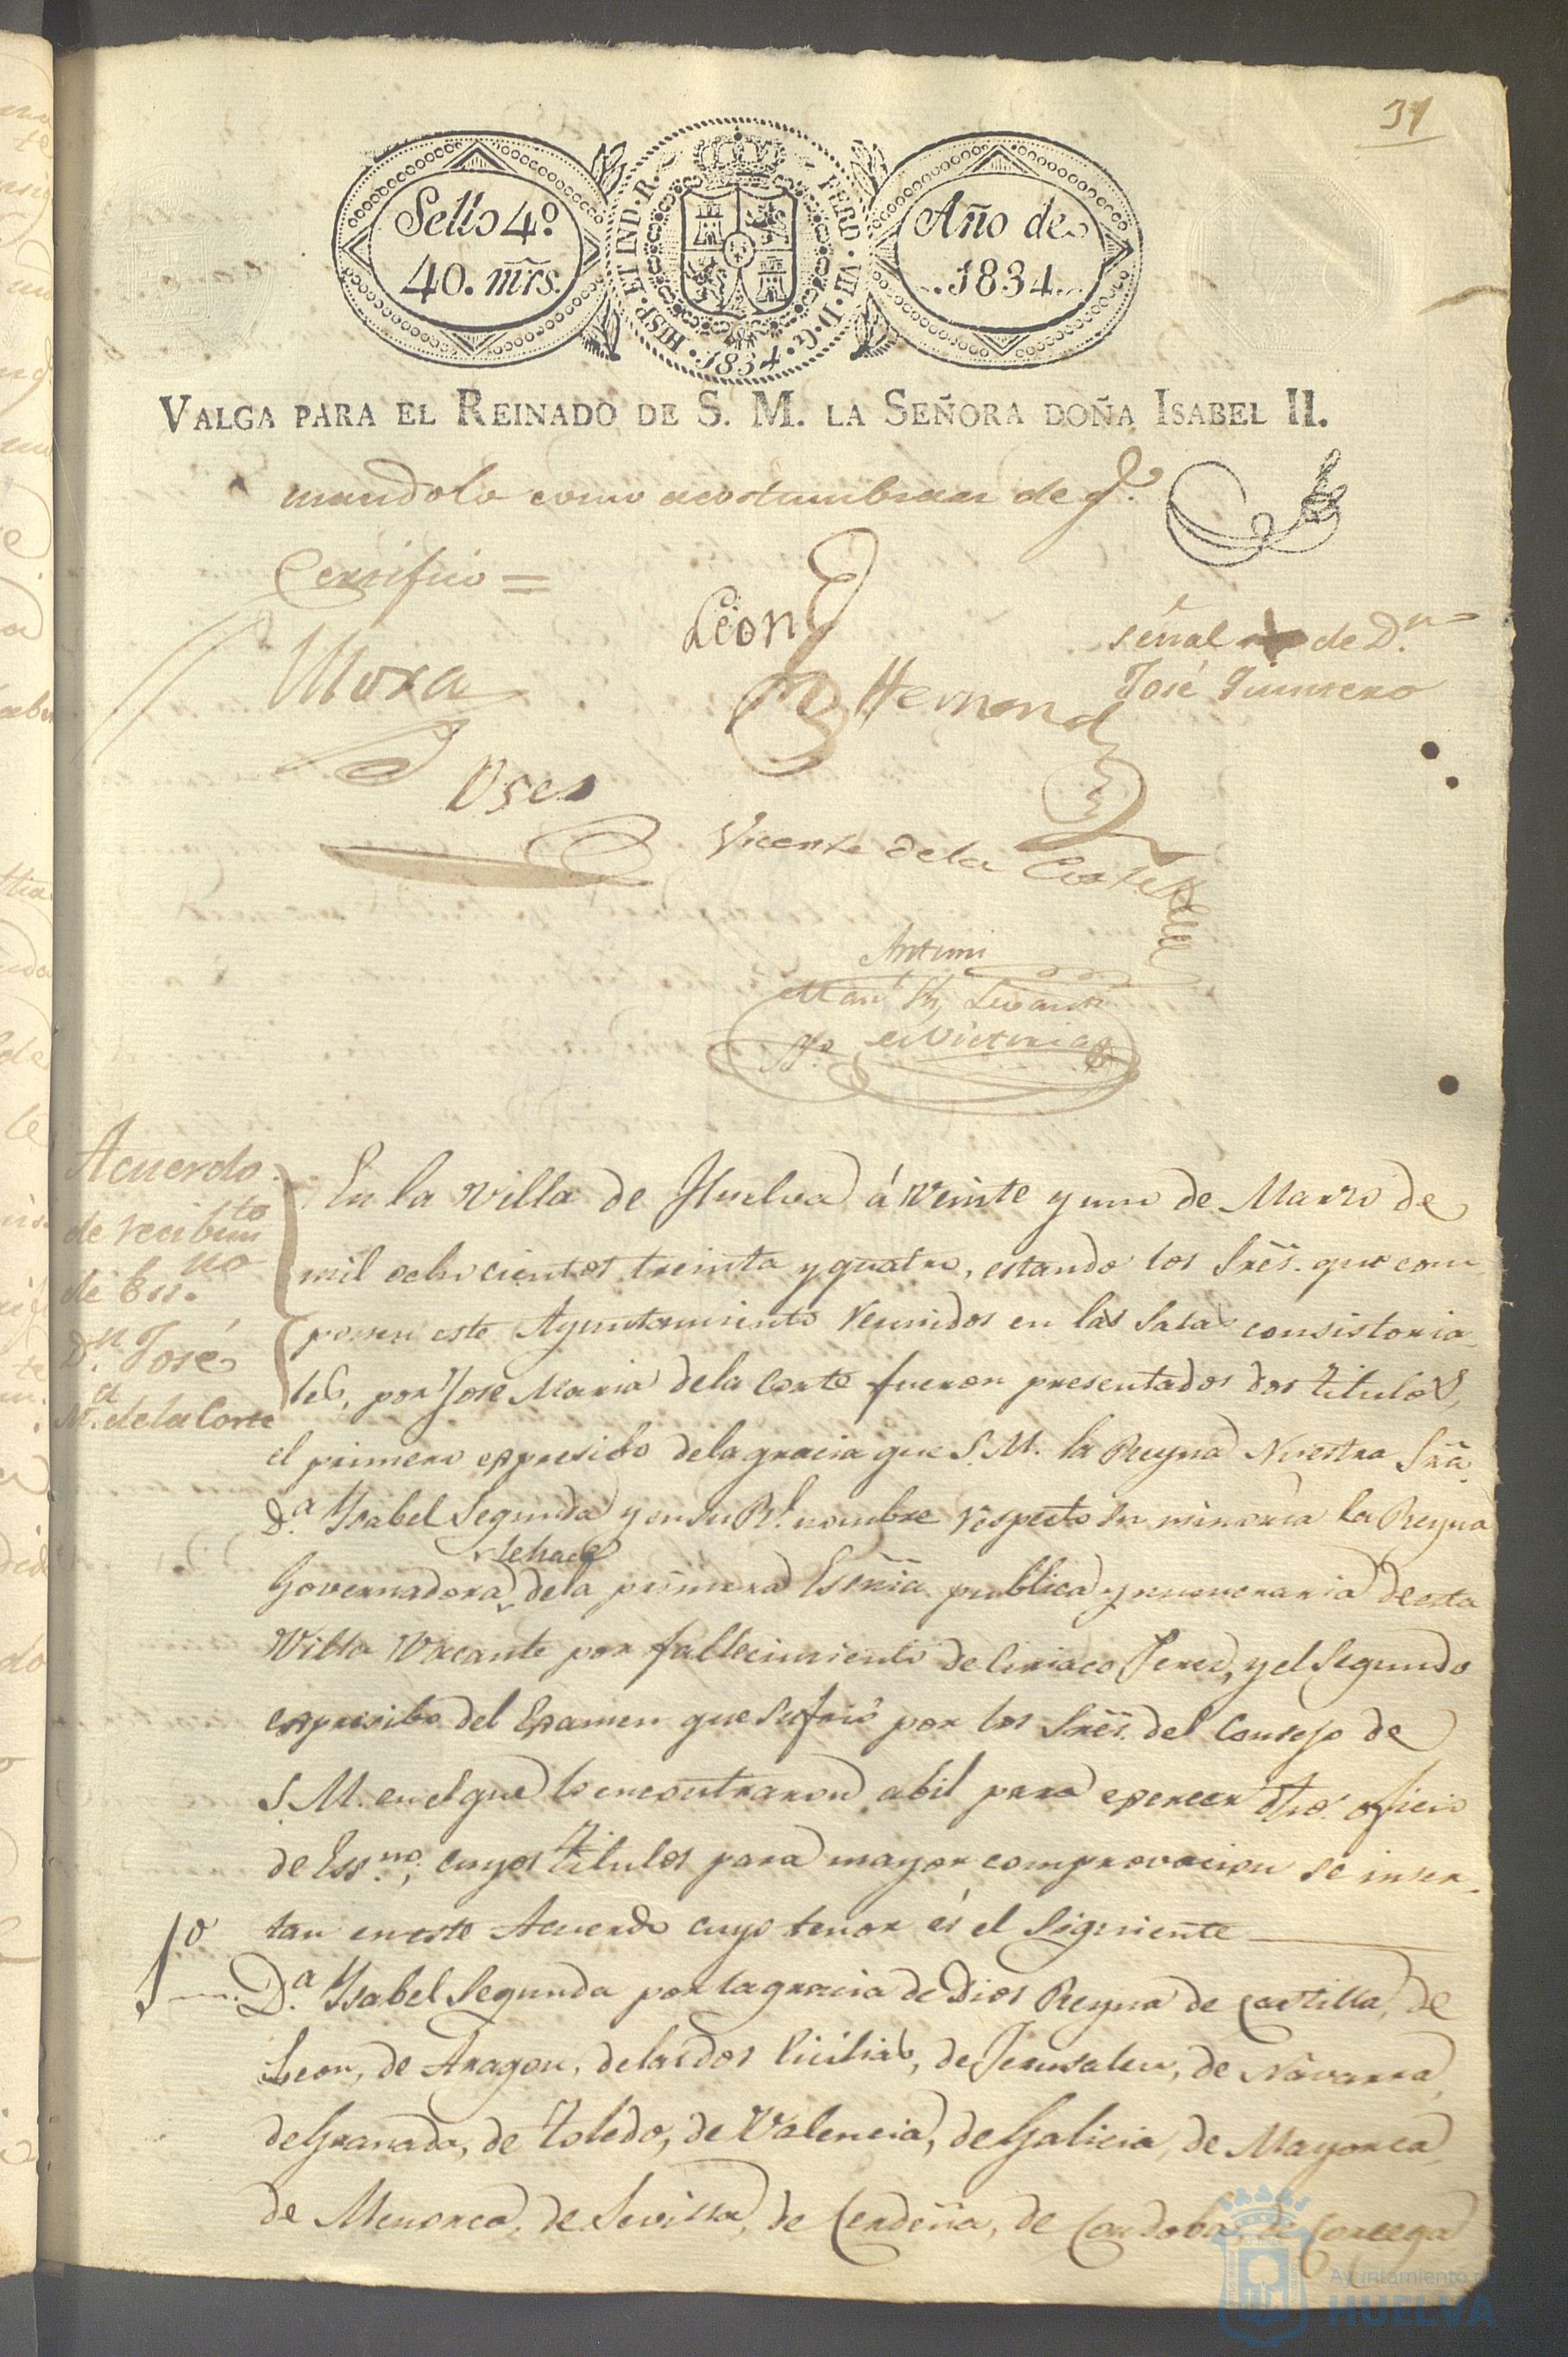 31
Sello 4º
40. mrs.
HISP. ET IND. R.
FERD. VII. D. G.
1834
Año de
1834
VALGA PARA EL REINADO DE S. M. LA SEÑORA DOÑA ISABEL II.
mandolo como acostumbran de q.e
Certifico =
Mora
Leon
señal de D.n
José Quintero
Hernand
Vicente de la Corte
Antemi
Acuerdo
de recibim.to
de Ess.no
D.n José
M.a de la Corte
En la Villa de Huelva á veinte y uno de Marzo de
mil ochocientos treinta y quatro, estando los Sres. que com
ponen este Ayuntamiento reunidos en las Salas consistoria
les, por Jose Maria dela Corte fueron presentados dos titulos,
el primero expresibo dela gracia que S. M. la Reyna Nuestra Srã.
D.a Ysabel Segunda y en su R.l nombre respecto su minoria la Reyna
le hace
Governadora dela primera Esñia publica y numeraria de esta
Villa Vacante por fallecimiento de Ciriaco Perez, y el Segundo
expresibo del Examen que sufrió por los Sres. del Consejo de
S. M. en el que lo encontraron abil para exercer dho. oficio
de Ess.no, cuyos titulos para mayor comprovacion se inser
tan eneste Acuerdo cuyo tenor és el Siguiente
1º
D.a Ysabel Segunda por la gracia de Dios Reyna de Castilla, de
Leon, de Aragon, delas dos Cicilias, de Jerusalen, de Navarra,
de Granada, de Toledo, de Valencia, de Galicia, de Mayorca,
de Menorca, de Sevilla, de Cerdeña, de Cordoba, de Corcega
Ayuntamiento de
HUELVA